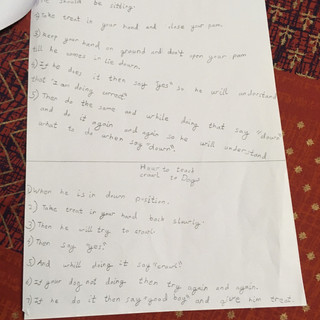 should be sitting.
Take treat in your hand and close your pam
3) Keep your hand on ground and don't open your pam
till he comes in lie down.
4) If he does it then say "yes" so he will understand
that "I am doing correct"
5) Then do the same and while doing that say "down"
and do it again and again so he will understand
what to do when say "down".
How to teach
crawl to Dogs
1) When he is in down position.
2) Take treat in your hand back slowly.
3) Then he will try to crawl.
4) Then say yes?
5) And whill doing it say "crawl?
6) If your dog not doing then try again and again.
7) If he do it then say "good boy" and give him treat.